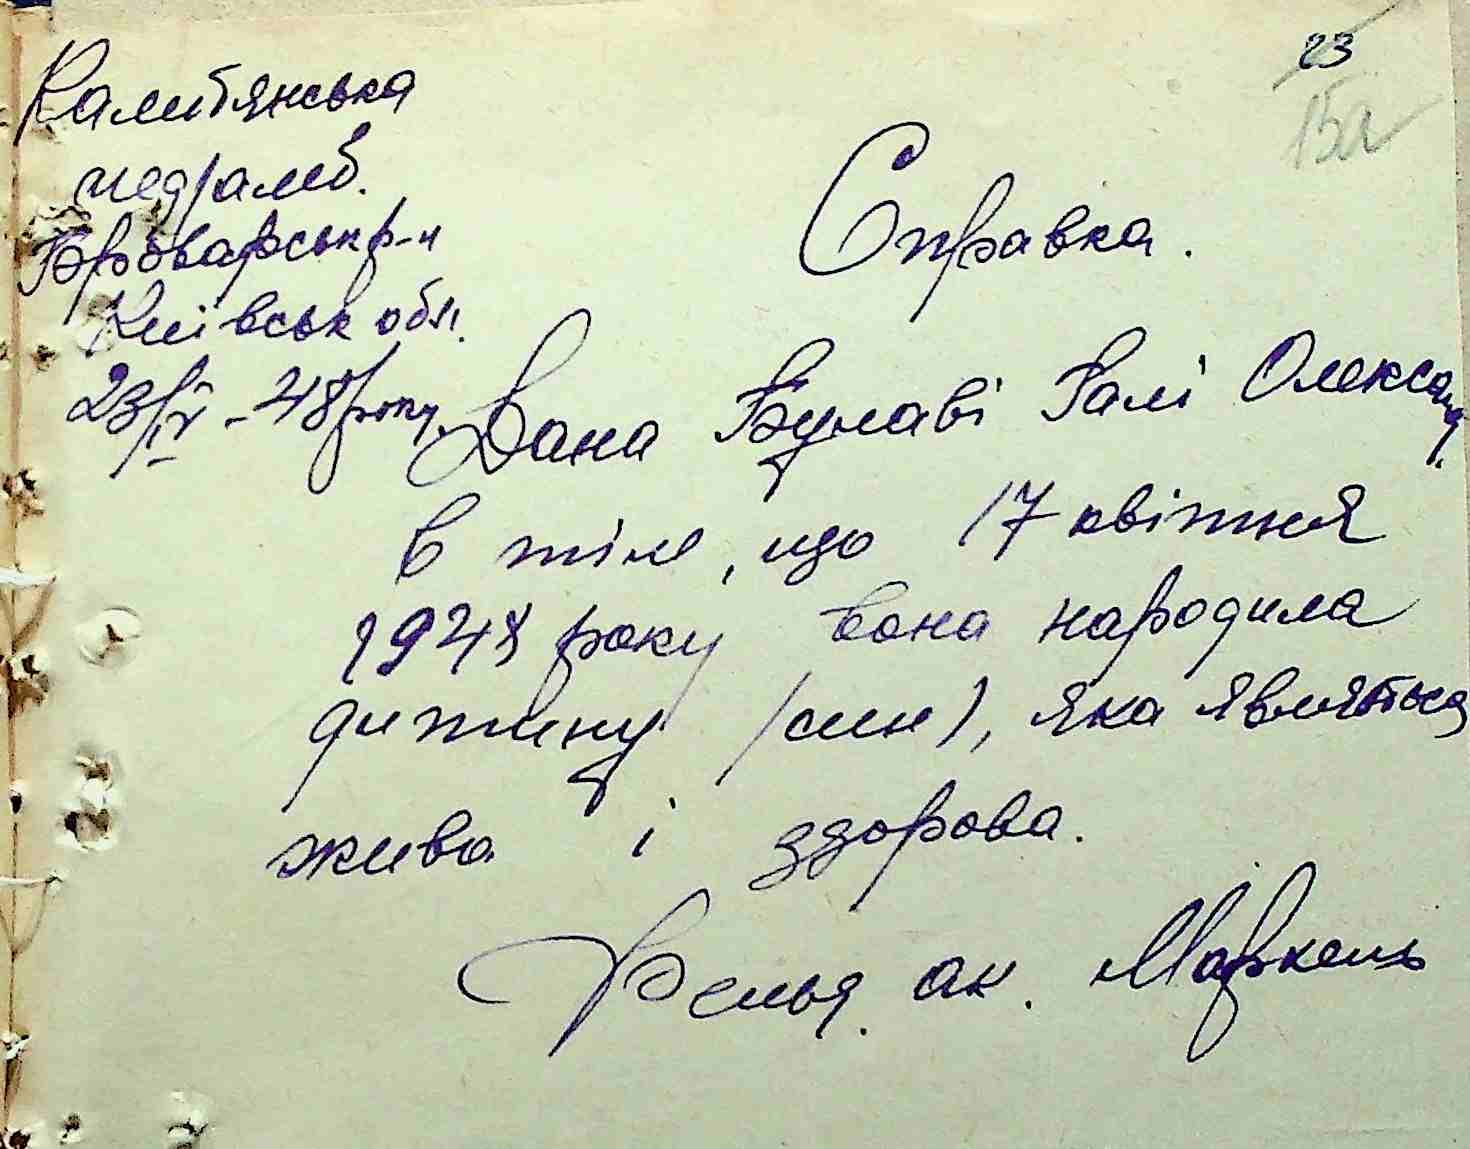 23
15а
Калитянська
медамб.
Броварськ р-н
Київськ обл.
23/IV - 48 року.
Справка.
Дана Булаві Галі Олександ.
в тім, що 17 квітня
1948 року вона народила
дитину /син/, яка являється
жива і здорова.
Фельд. ак. Маркель